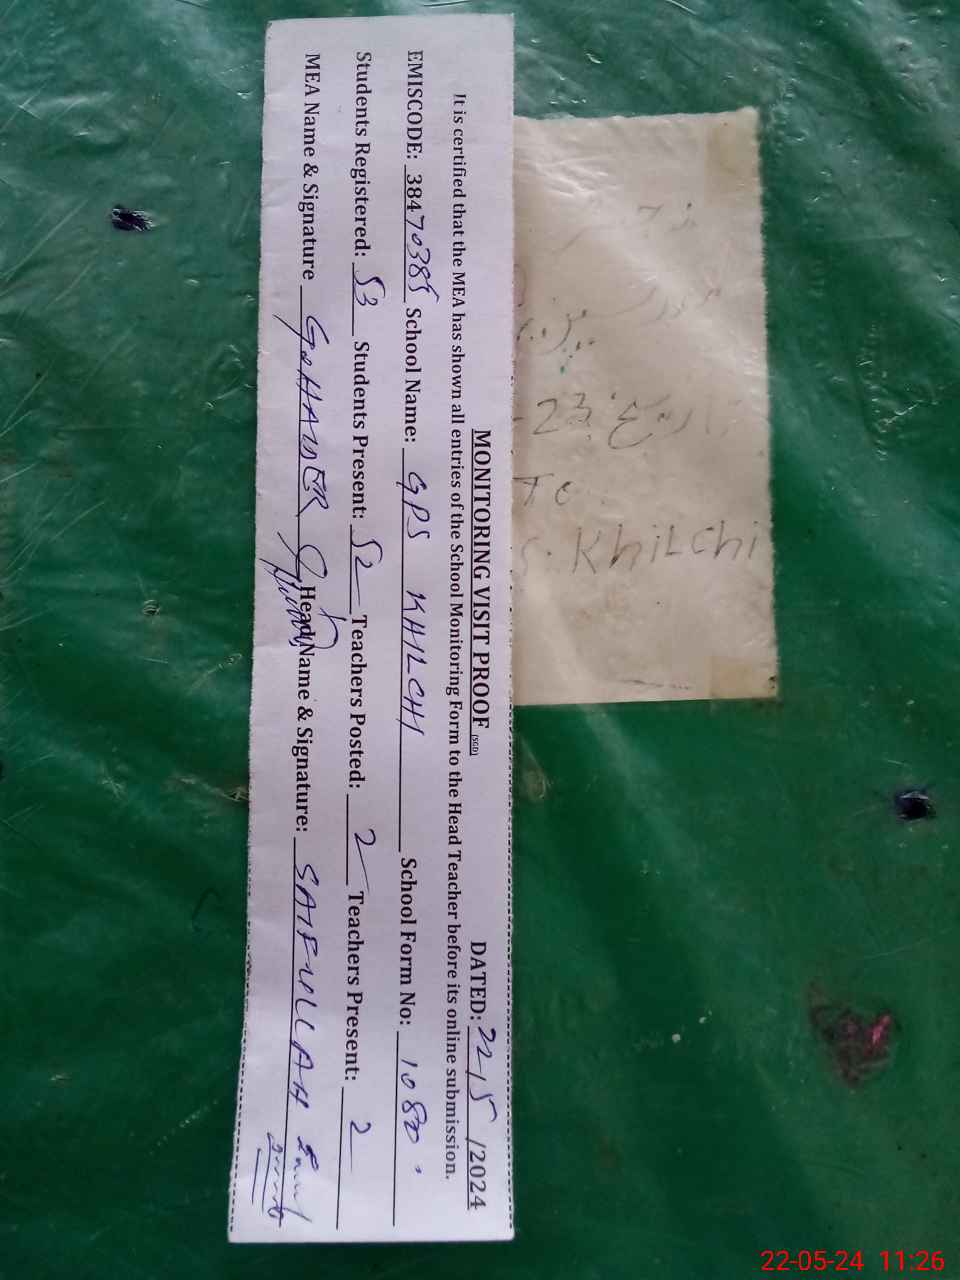 MONITORING VISIT PROOF (SGD) DATED: 22/5/2024
It is certified that the MEA has shown all entries of the School Monitoring Form to the Head Teacher before its online submission.
EMISCODE: 38470385 School Name: GPS KHILCHI School Form No: 1080
Students Registered: 53 Students Present: 52 Teachers Posted: 2 Teachers Present: 2
MEA Name & Signature GOHAR Head Name & Signature: SAIFULLAH
23
To
Khilchi
22-05-24 11:26